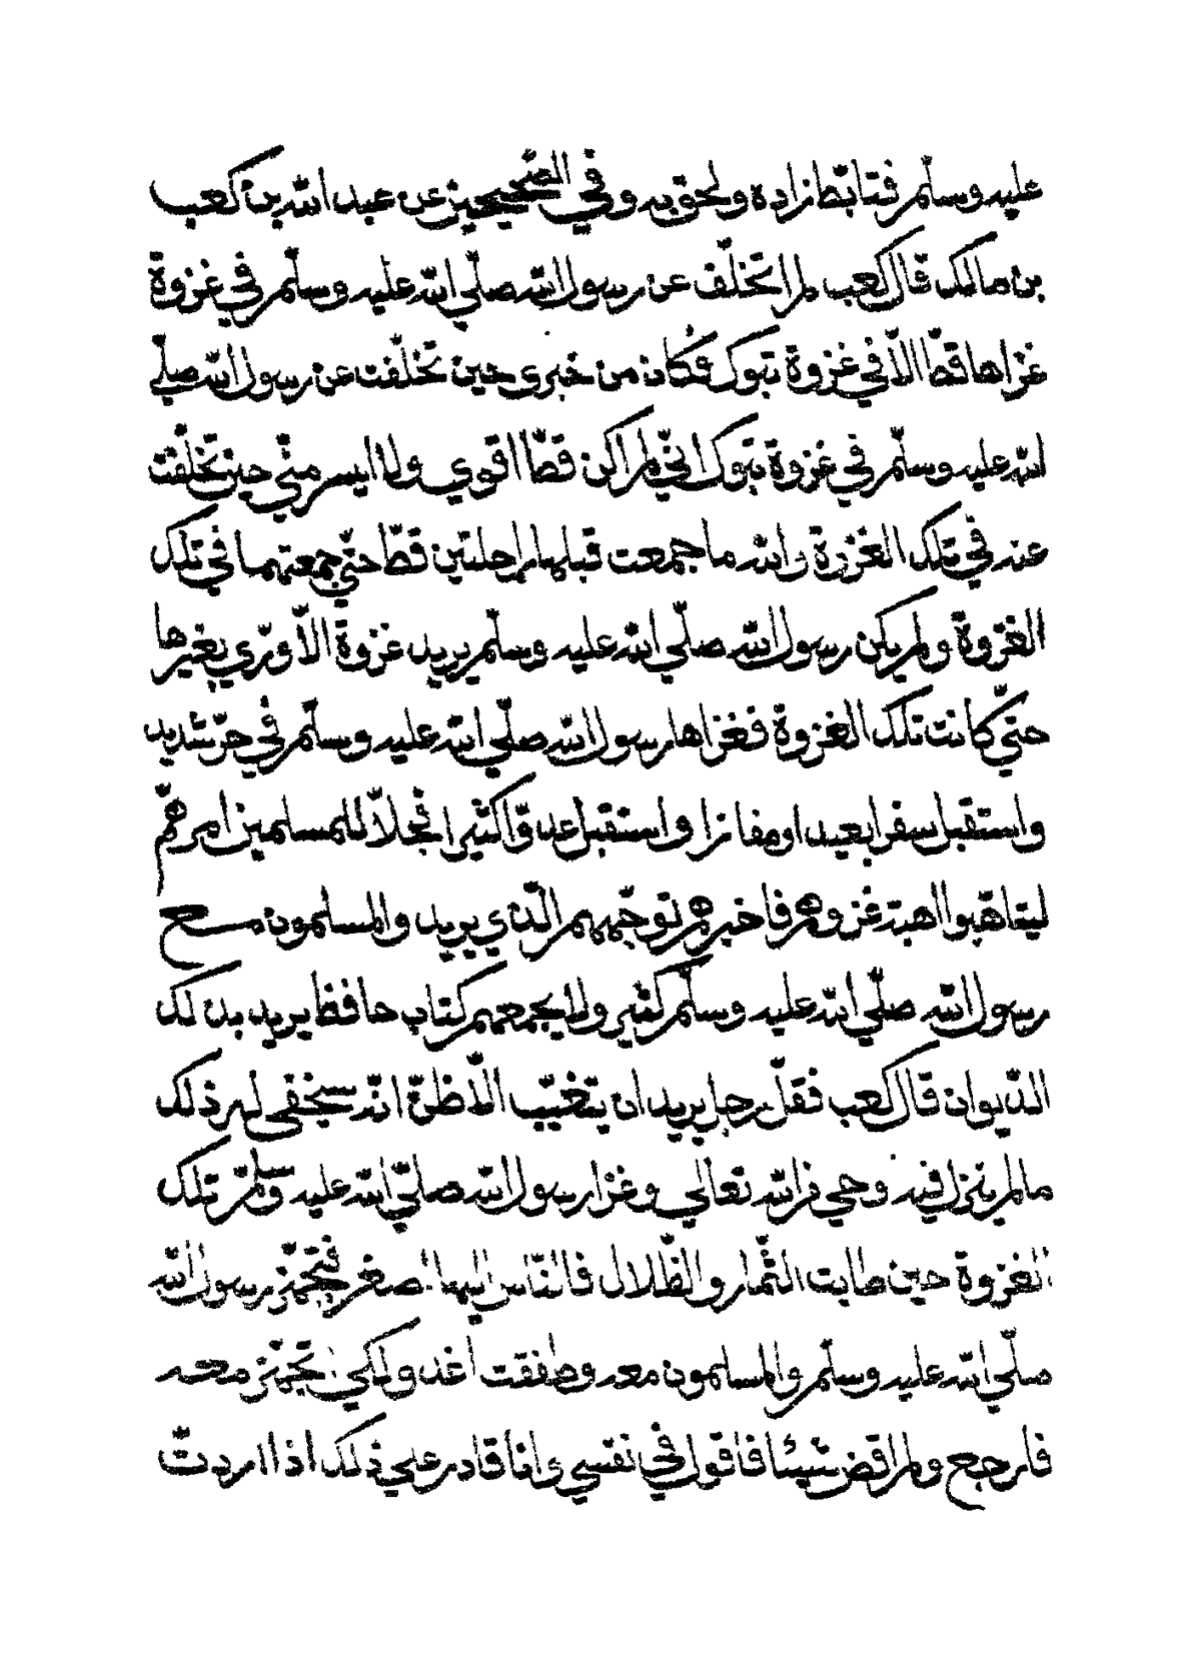 عليه وسلّم فتابّط زاده ولحق به وفي الصّحيحين عن عبد الله بن كعب
بن مالك قال كعب لم اتخلّف عن رسول الله صلّي الله عليه وسلّم في غزوة
غزاها قطّ الاّ في غزوة تبوك فكان من خبري حين تخلّفت عن رسول الله صلّي
الله عليه وسلّم في غزوة تبوك انّي لم اكن قطّ اقوي ولا ايسر منّي حين تخلّفت
عنه في تلك الغزوة والله ما جمعت قبلها راحلتين قطّ حتّي جمعتهما في تلك
الغزوة ولم يكن رسول الله صلّي الله عليه وسلّم يريد غزوة الاّ ورّي بغيرها
حتّي كانت تلك الغزوة فغزاها رسول الله صلّي الله عليه وسلّم في حرّ شديد
واستقبل سفرا بعيدا ومفازا واستقبل عدوّا كثيرا فجلاّ للمسلمين امرهمّ
ليتاهّبوا اهبة غزوهم فاخبرهم بوجّههم الّذي يريد والمسلمون مع
رسول الله صلّي الله عليه وسلّم كثير ولا يجمعهم كتاب حافظ يريد بذلك
الدّيوان قال كعب فقلّ رجل يريد ان يتغيّب الاّ ظنّ انّه سيخفى له ذلك
مالم ينزل فيه وحي من الله تعالي وغزا رسول الله صلّي الله عليه وسلّم تلك
الغزوة حين طابت الثّمار والظّلال فانا اليها اصغر فتجهّز رسول الله
صلّي الله عليه وسلّم والمسلمون معه وطفقت اغدو لكي اتجهّز معه
فارجع ولم اقض شيئا فاقول في نفسي وانا قادر علي ذلك اذا اردتّ